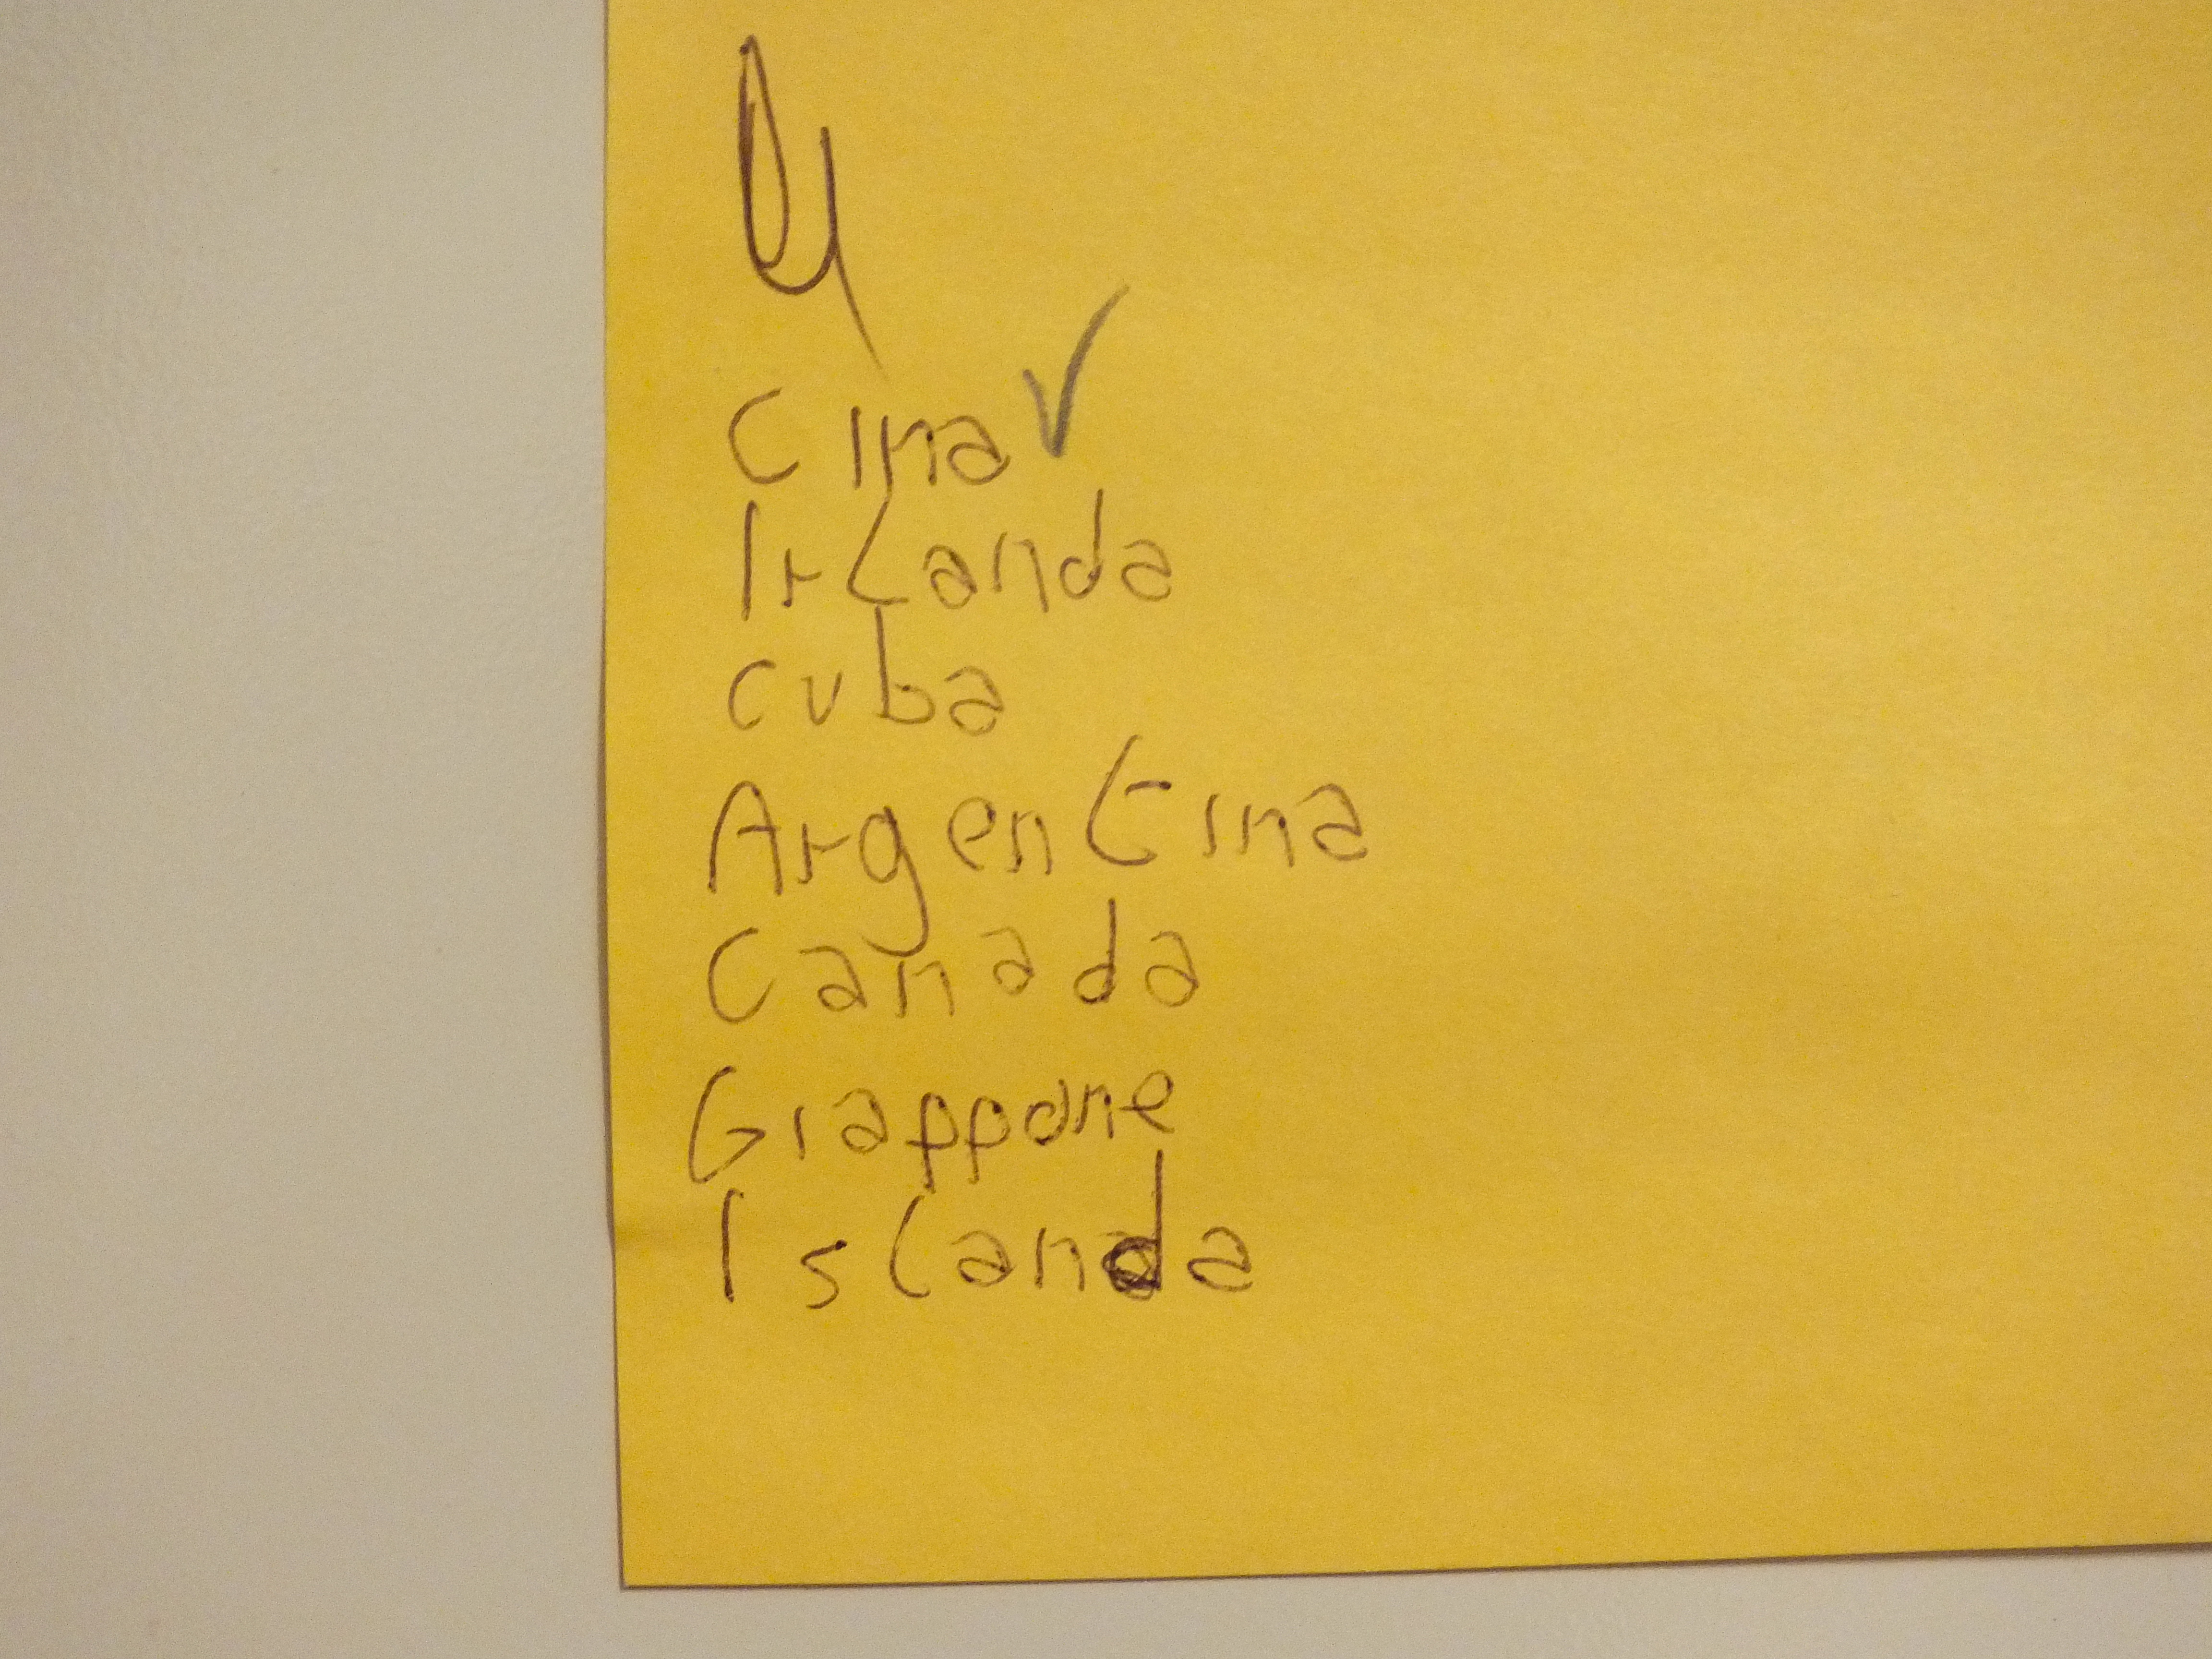 Cina ✓
Irlanda
cuba
Argentina
Canada
Giappone
Islanda